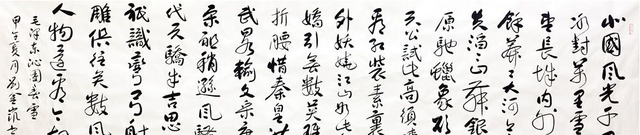 北國風光千
冰封萬里雪
望長城內外
餘莽莽大河上
失滔滔山舞銀
原馳蠟象欲
天公試比高須晴
看紅裝素裹
外妖嬈江山如此
嬌引無數英雄
折腰惜秦皇漢
武略輸文采唐
宗祖稍遜風騷
代天驕成吉思
祇識彎弓射
雕俱往矣數風
人物還看今朝
毛澤東沁園春雪